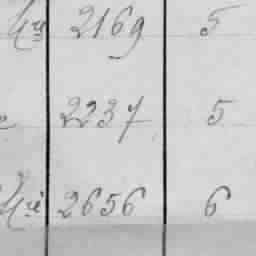 2169 5
2237 5
2656 6